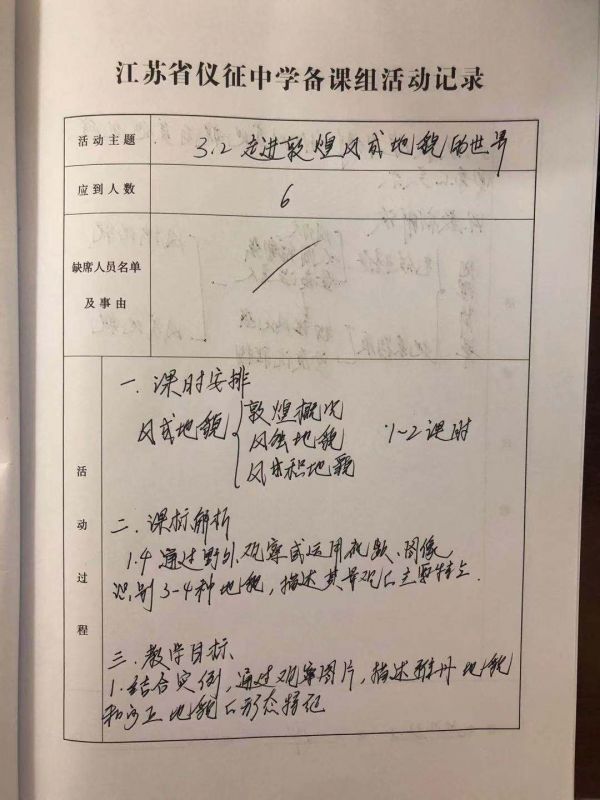 江苏省仪征中学备课组活动记录
活动主题 3.2 走进敦煌风成地貌的世界
应到人数 6
缺席人员名单
及事由
活动过程
一. 课时安排
风成地貌 敦煌概况 风蚀地貌 风力堆积地貌 1~2课时
二. 课标解析
1.4 通过野外观察或运用视频、图像
识别3-4种地貌, 描述其景观的主要特点.
三. 教学目标
1. 结合实例, 通过观察图片, 描述雅丹地貌
和沙丘地貌的形态特征